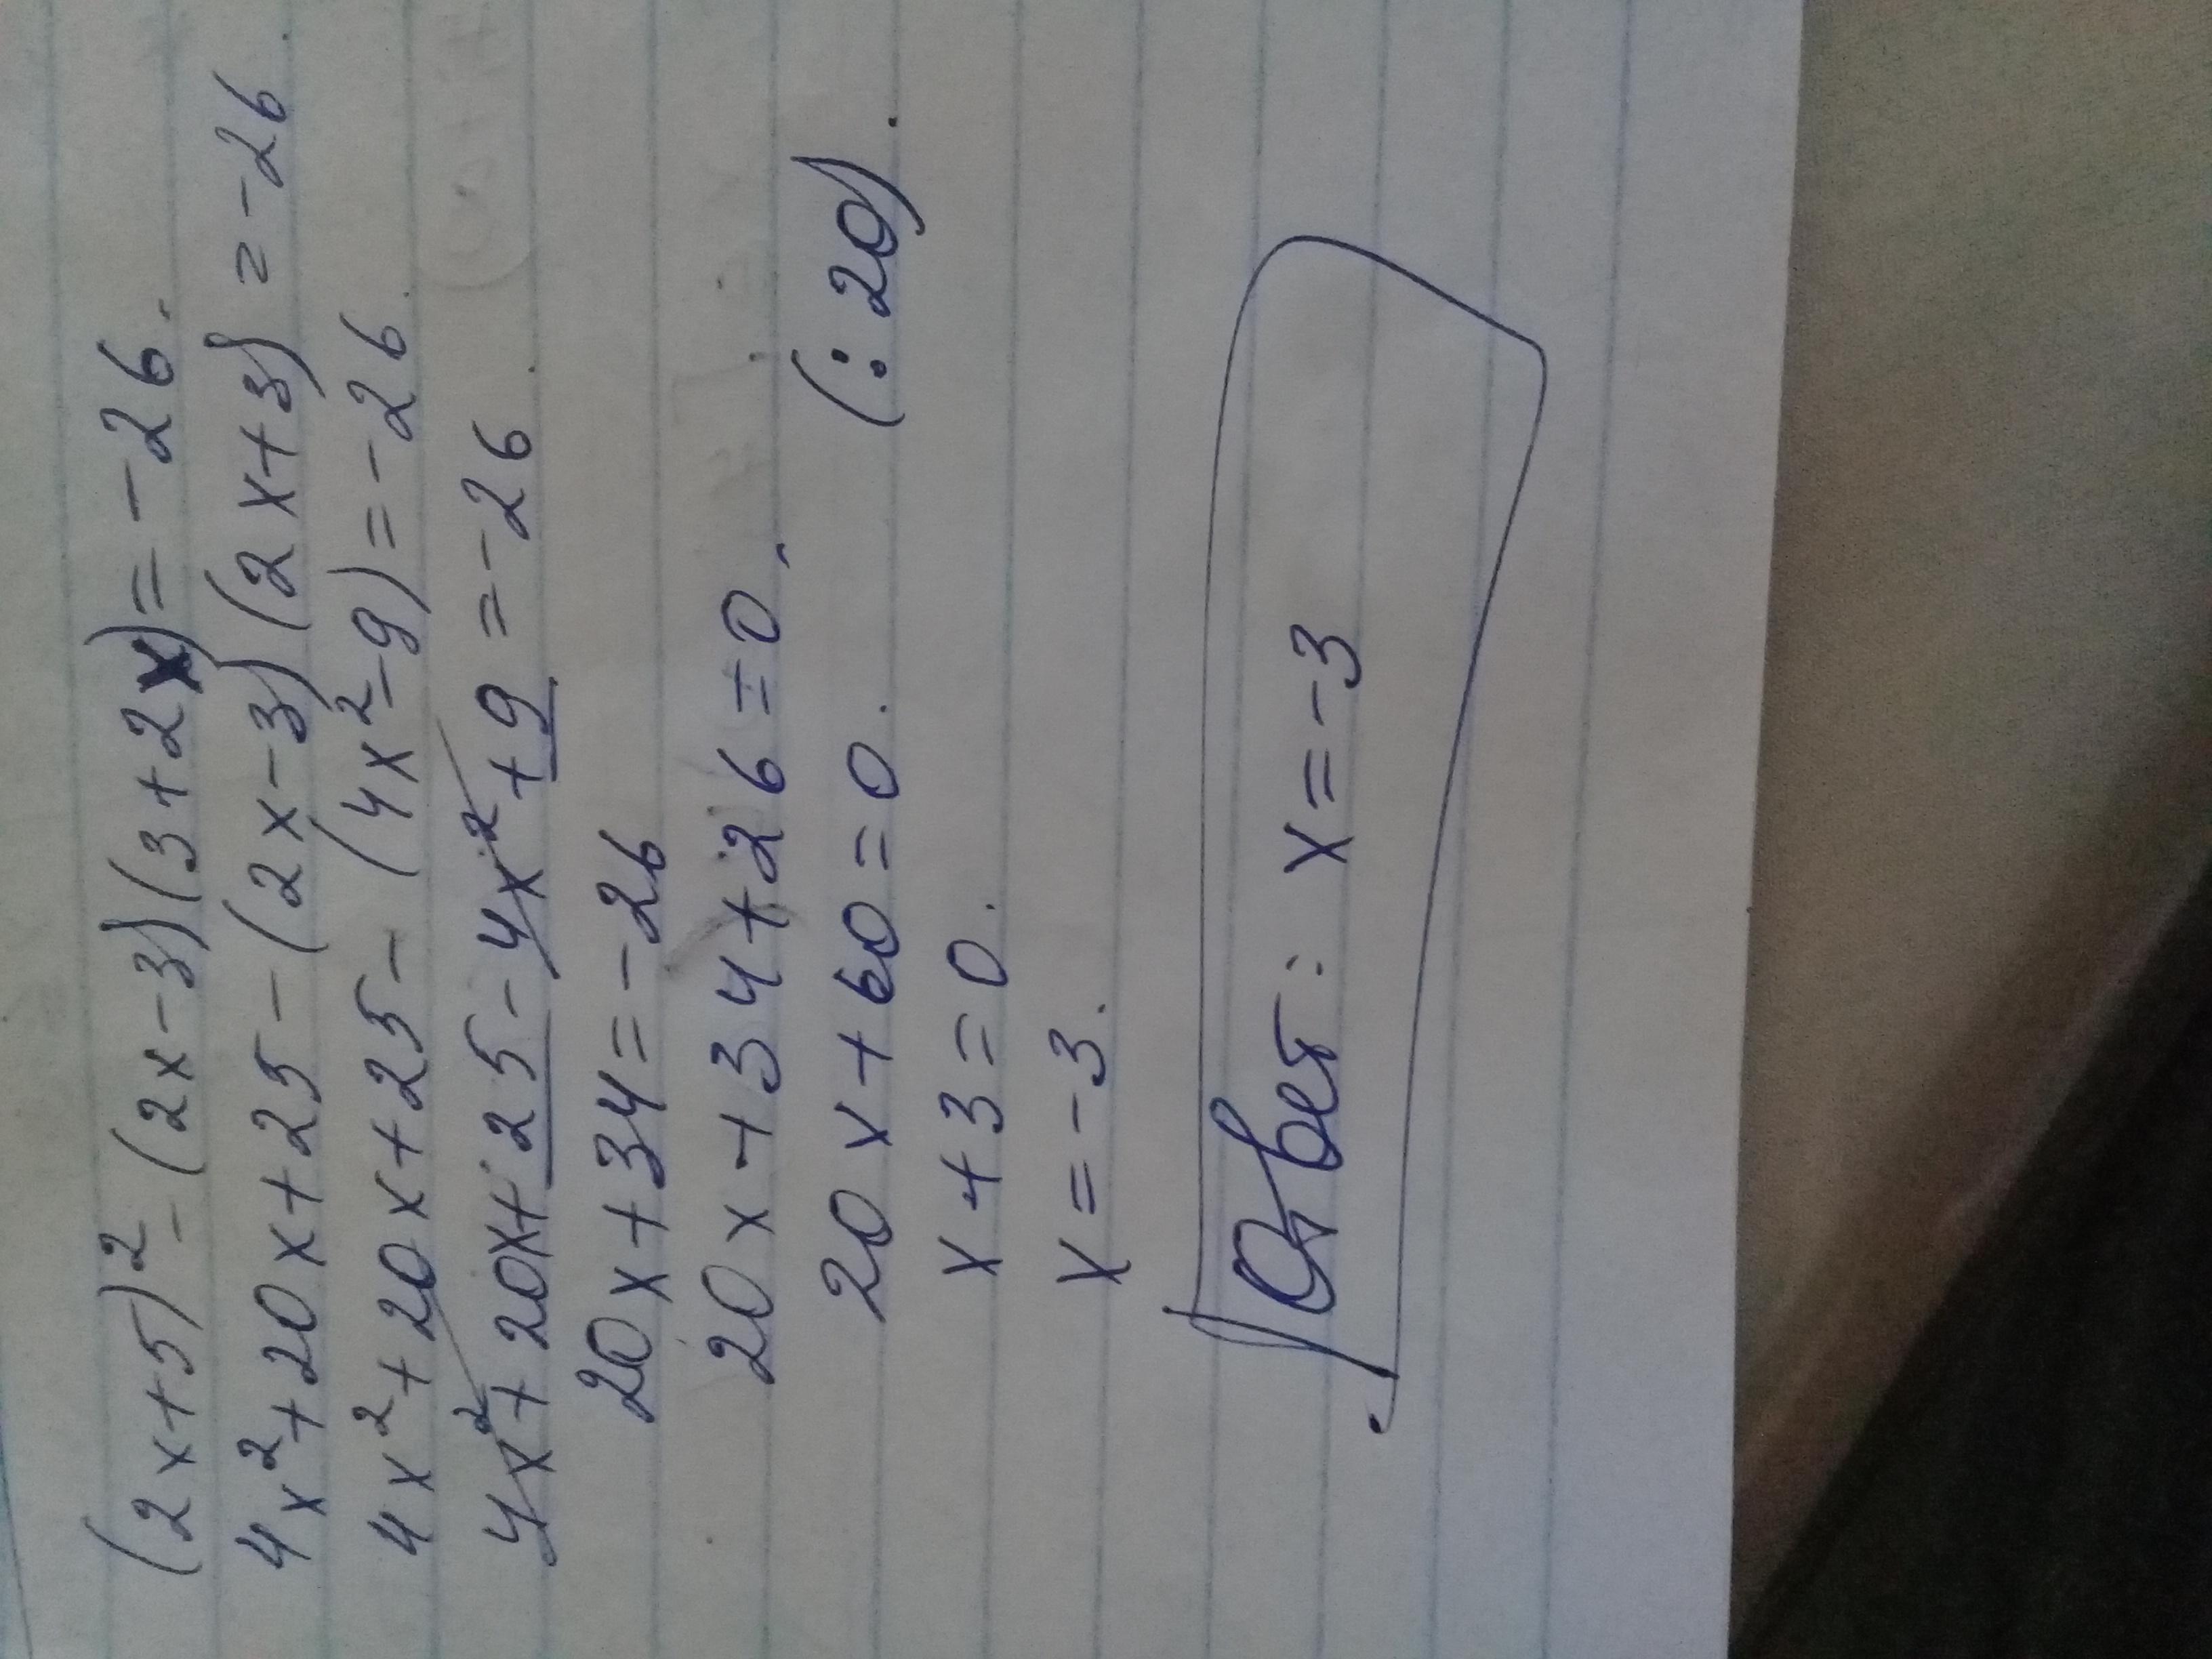 (2x+5)²-(2x-3)(3+2x)=-26.
4x²+20x+25-(2x-3)(2x+3)=-26
4x²+20x+25-(4x²-9)=-26.
4x²+20x+25-4x²+9=-26.
20x+34=-26
20x+34+26=0.
20x+60=0. (:20).
x+3=0.
x=-3.
Ответ: x=-3